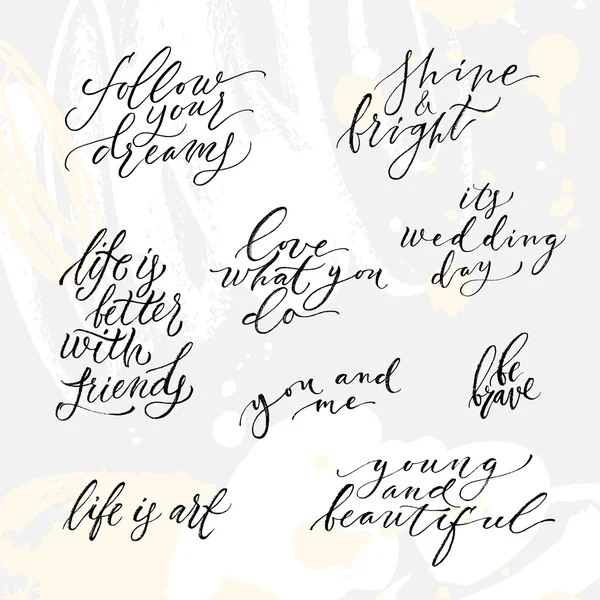 follow
your
dreams
shine
&
bright
it's
wedding
day
love
what you
do
life is
better
with
friends
you and
me
be
brave
life is art
young
and
beautiful